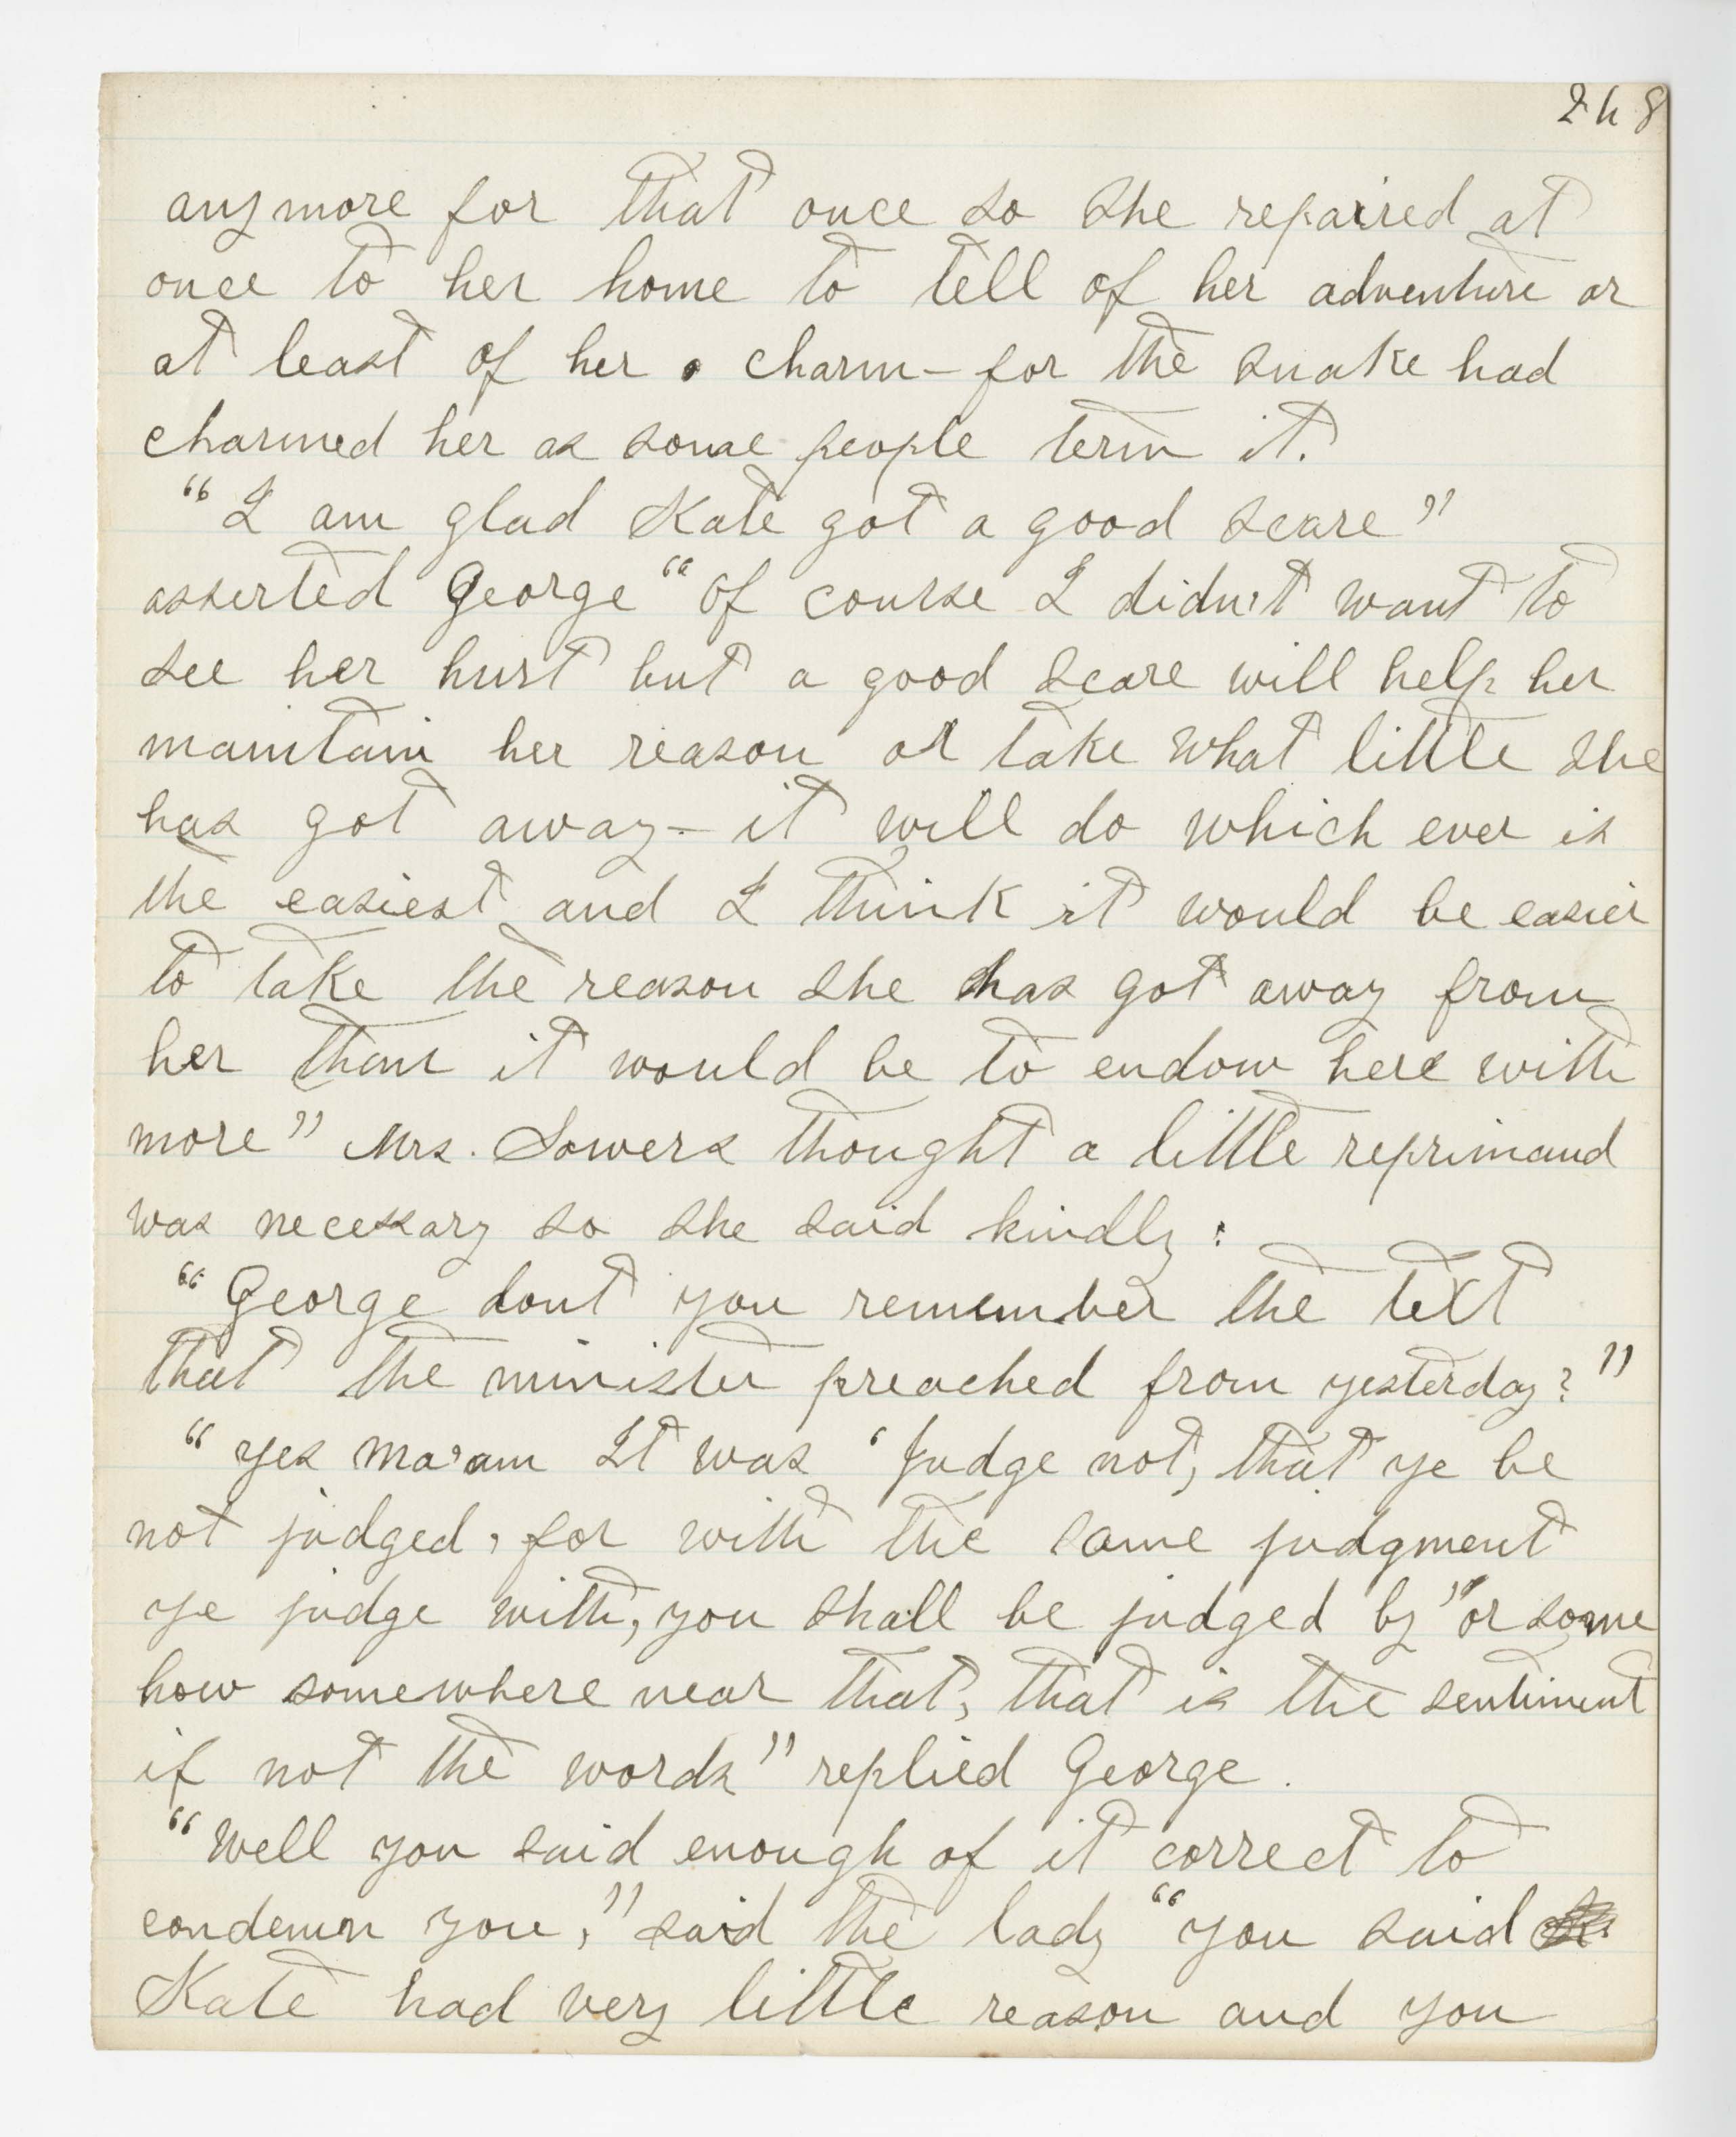 248
anymore for that once so she repaired at
once to her home to tell of her adventure or
at least of her charm - for the snake had
charmed her as some people term it.
"I am glad Kate got a good scare"
asserted George "of course I didn't want to
see her hurt but a good scare will help her
maintain her reason or take what little she
has got away - it will do which ever is
the easiest and I think it would be easier
to take the reason she has got away from
her than it would be to endow here with
more" Mrs. Sowers thought a little reprimand
was necessary so she said kindly:
"George dont you remember the text
that the minister preached from yesterday?"
"yes ma'am It was 'Judge not, that ye be
not judged, for with the same judgment
ye judge with, you shall be judged by" or some
how somewhere near that, that is the sentiment
if not the words" replied George.
"Well you said enough of it correct to
condemn you," said the lady "you said
Kate had very little reason and you